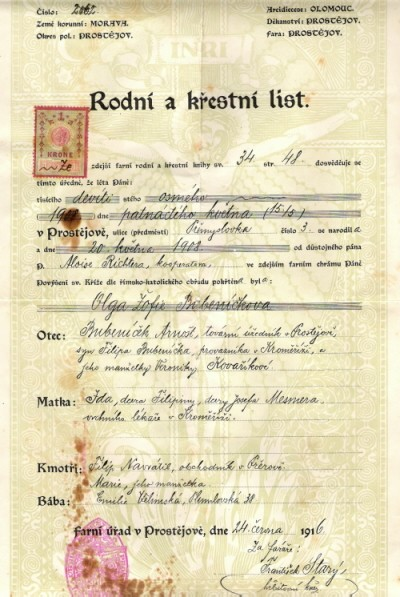 Číslo: 2062
Země korunní: MORAVA.
Okres pol.: PROSTĚJOV.
Arcidiecese: OLOMOUC.
Děkanství: PROSTĚJOV.
Fara: PROSTĚJOV.
INRI
Rodní a křestní list.
1
KRONE
Ze zdejší farní rodní a křestní knihy sv. 34 str. 48. dosvědčuje se
tímto úředně, že léta Páně:
tisícího devíti stého osmého
1908 dne patnáctého května (15/5)
v Prostějově, ulice (předměstí) číslo 3. se narodil a
a dne 20 května 1908 od důstojného pána
P. Aloise Richtera, kooperatora, ve zdejším farním chrámu Páně
Povýšení sv. Kříže dle římsko-katolického obřadu pokřtěna byla:
Olga Žofie Bubeníčkova
Otec: Bubeníček Arnošt, tovární úředník v Prostějově,
syn Filipa Bubeníčka, provazníka v Kroměříži, a
jeho manželky Veroniky Kovaříkové
Matka: Ida, dcera Filipiny, dcery Josefa Mesmera
vrchního lékaře v Kroměříži.
Kmotři: Filip Navrátil, obchodník v Přerově
Marie, jeho manželka
Bába: Emilie 38
Farní úřad v Prostějově, dne 24. června 1916
Za faráře:
František Starý,